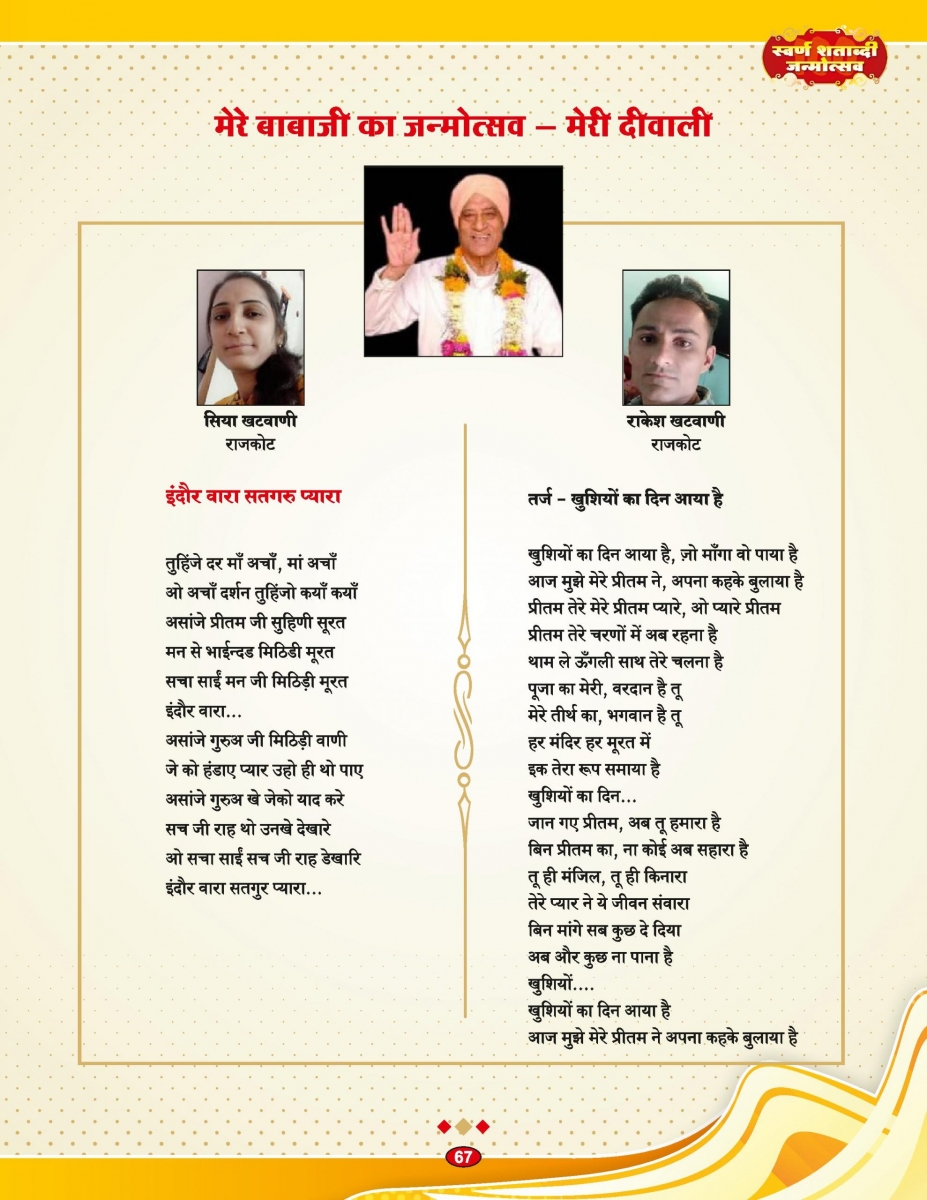 स्वर्ण शताब्दी
जन्मोत्सव
मेरे बाबाजी का जन्मोत्सव – मेरी दीवाली
सिया खटवाणी
राजकोट
इंदौर वारा सतगरु प्यारा
तुहिंजे दर माँ अचाँ, मां अचाँ
ओ अचाँ दर्शन तुहिंजो कयाँ कयाँ
असांजे प्रीतम जी सुहिणी सूरत
मन से भाईन्दड मिठिडी मूरत
सचा साईं मन जी मिठिड़ी मूरत
इंदौर वारा...
असांजे गुरुअ जी मिठिड़ी वाणी
जे को हंडाए प्यार उहो ही थो पाए
असांजे गुरुअ खे जेको याद करे
सच जी राह थो उनखे देखारे
ओ सचा साईं सच जी राह डेखारि
इंदौर वारा सतगुर प्यारा...
राकेश खटवाणी
राजकोट
तर्ज – खुशियों का दिन आया है
खुशियों का दिन आया है, ज़ो माँगा वो पाया है
आज मुझे मेरे प्रीतम ने, अपना कहके बुलाया है
प्रीतम तेरे मेरे प्रीतम प्यारे, ओ प्यारे प्रीतम
प्रीतम तेरे चरणों में अब रहना है
थाम ले ऊँगली साथ तेरे चलना है
पूजा का मेरी, वरदान है तू
मेरे तीर्थ का, भगवान है तू
हर मंदिर हर मूरत में
इक तेरा रूप समाया है
खुशियों का दिन...
जान गए प्रीतम, अब तू हमारा है
बिन प्रीतम का, ना कोई अब सहारा है
तू ही मंजिल, तू ही किनारा
तेरे प्यार ने ये जीवन संवारा
बिन मांगे सब कुछ दे दिया
अब और कुछ ना पाना है
खुशियों....
खुशियों का दिन आया है
आज मुझे मेरे प्रीतम ने अपना कहके बुलाया है
67